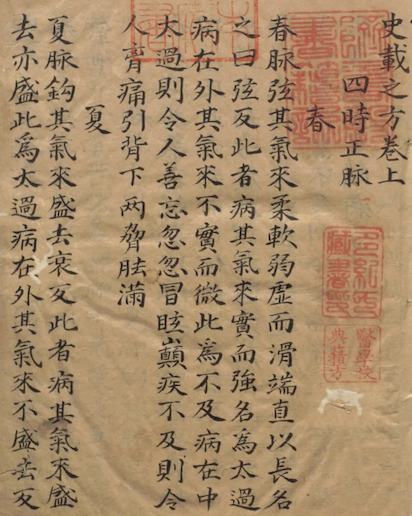 史載之方卷上
四時正脉
春
春脉弦其氣來柔軟弱虛而滑端直以長名
之曰弦反此者病其氣來實而強名為太過
病在外其氣來不實而微此為不及病在中
太過則令人善忘忽忽冒眩巔疾不及則令
人胷痛引背下两脅胠滿
夏
夏脉鈎其氣來盛去衰反此者病其氣來盛
去亦盛此為太過病在外其氣來不盛去反